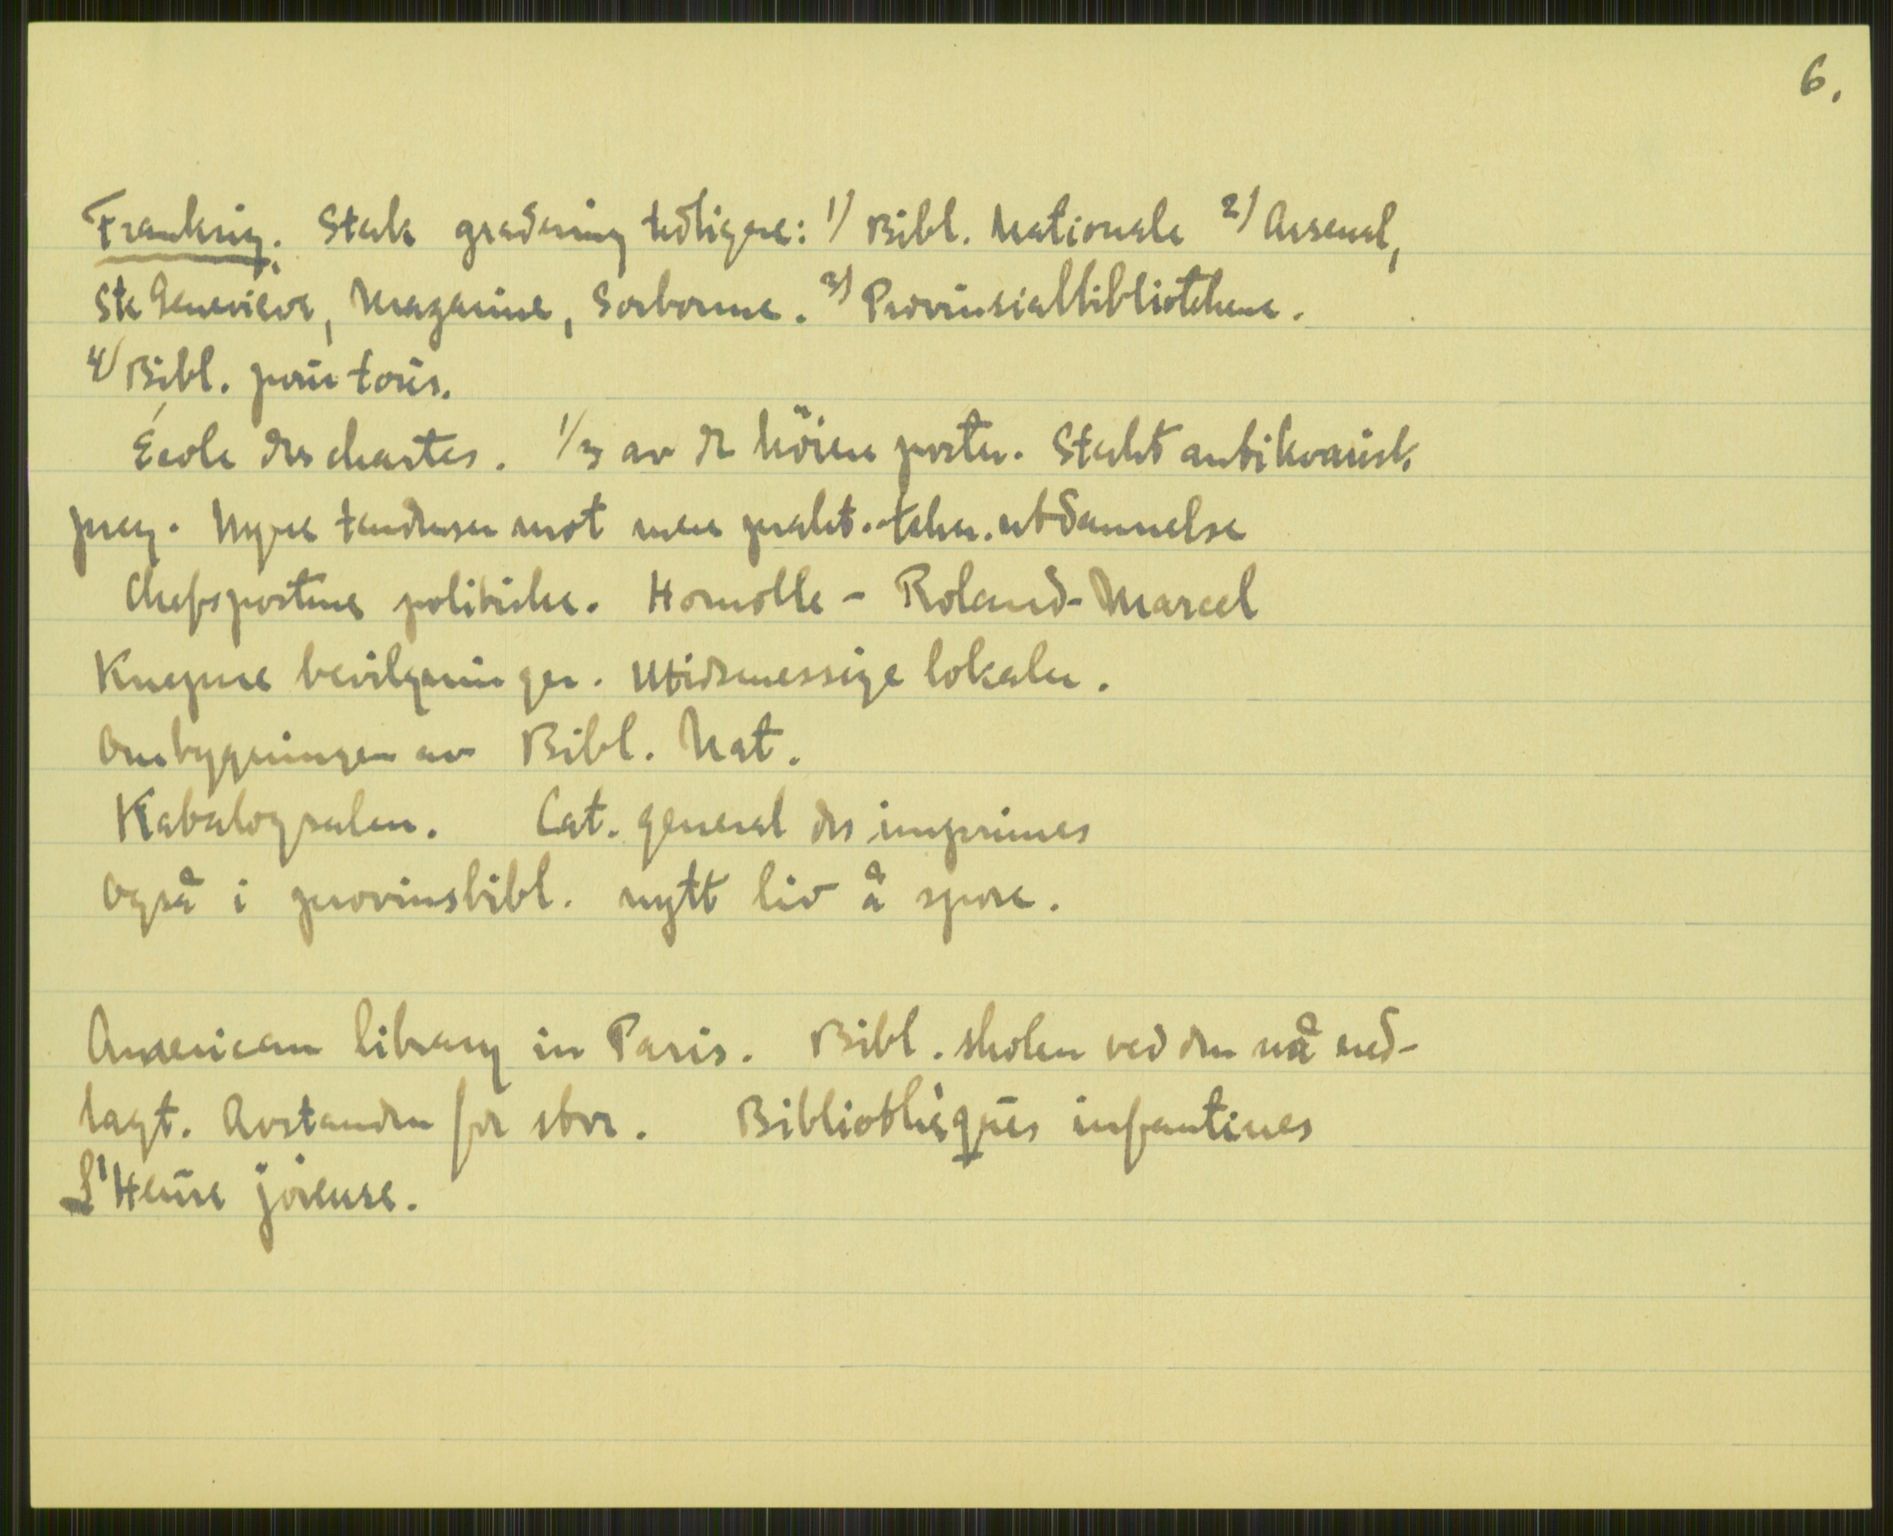 6.
Frankrig. Sterk gradering tidligere: 1/ Bibl. Nationale 2/ Arsenal,
Ste Genevieve, Mazarine, Sorbonne. 3/ Provinsialbibliotekene.
4/ Bibl. pour tous.
École des chartes. 1/3 av de höiere poster. Sterkt antikvarisk
preg. Nyere tendenser mot mere prakt.-tekn. utdannelse
Chefspostene politiske. Homolle - Roland-Marcel
Knepne bevilgninger. Utidsmessige lokaler.
Ombygningen av Bibl. Nat.
Katalogsalen. Cat. general des imprimes
Også i provinsbibl. nytt liv å spore.
American library in Paris. Bibl. skolen ved den nå ned-
lagt. Avstanden for stor. Bibliothèques enfantines
L'Heure joieuse.